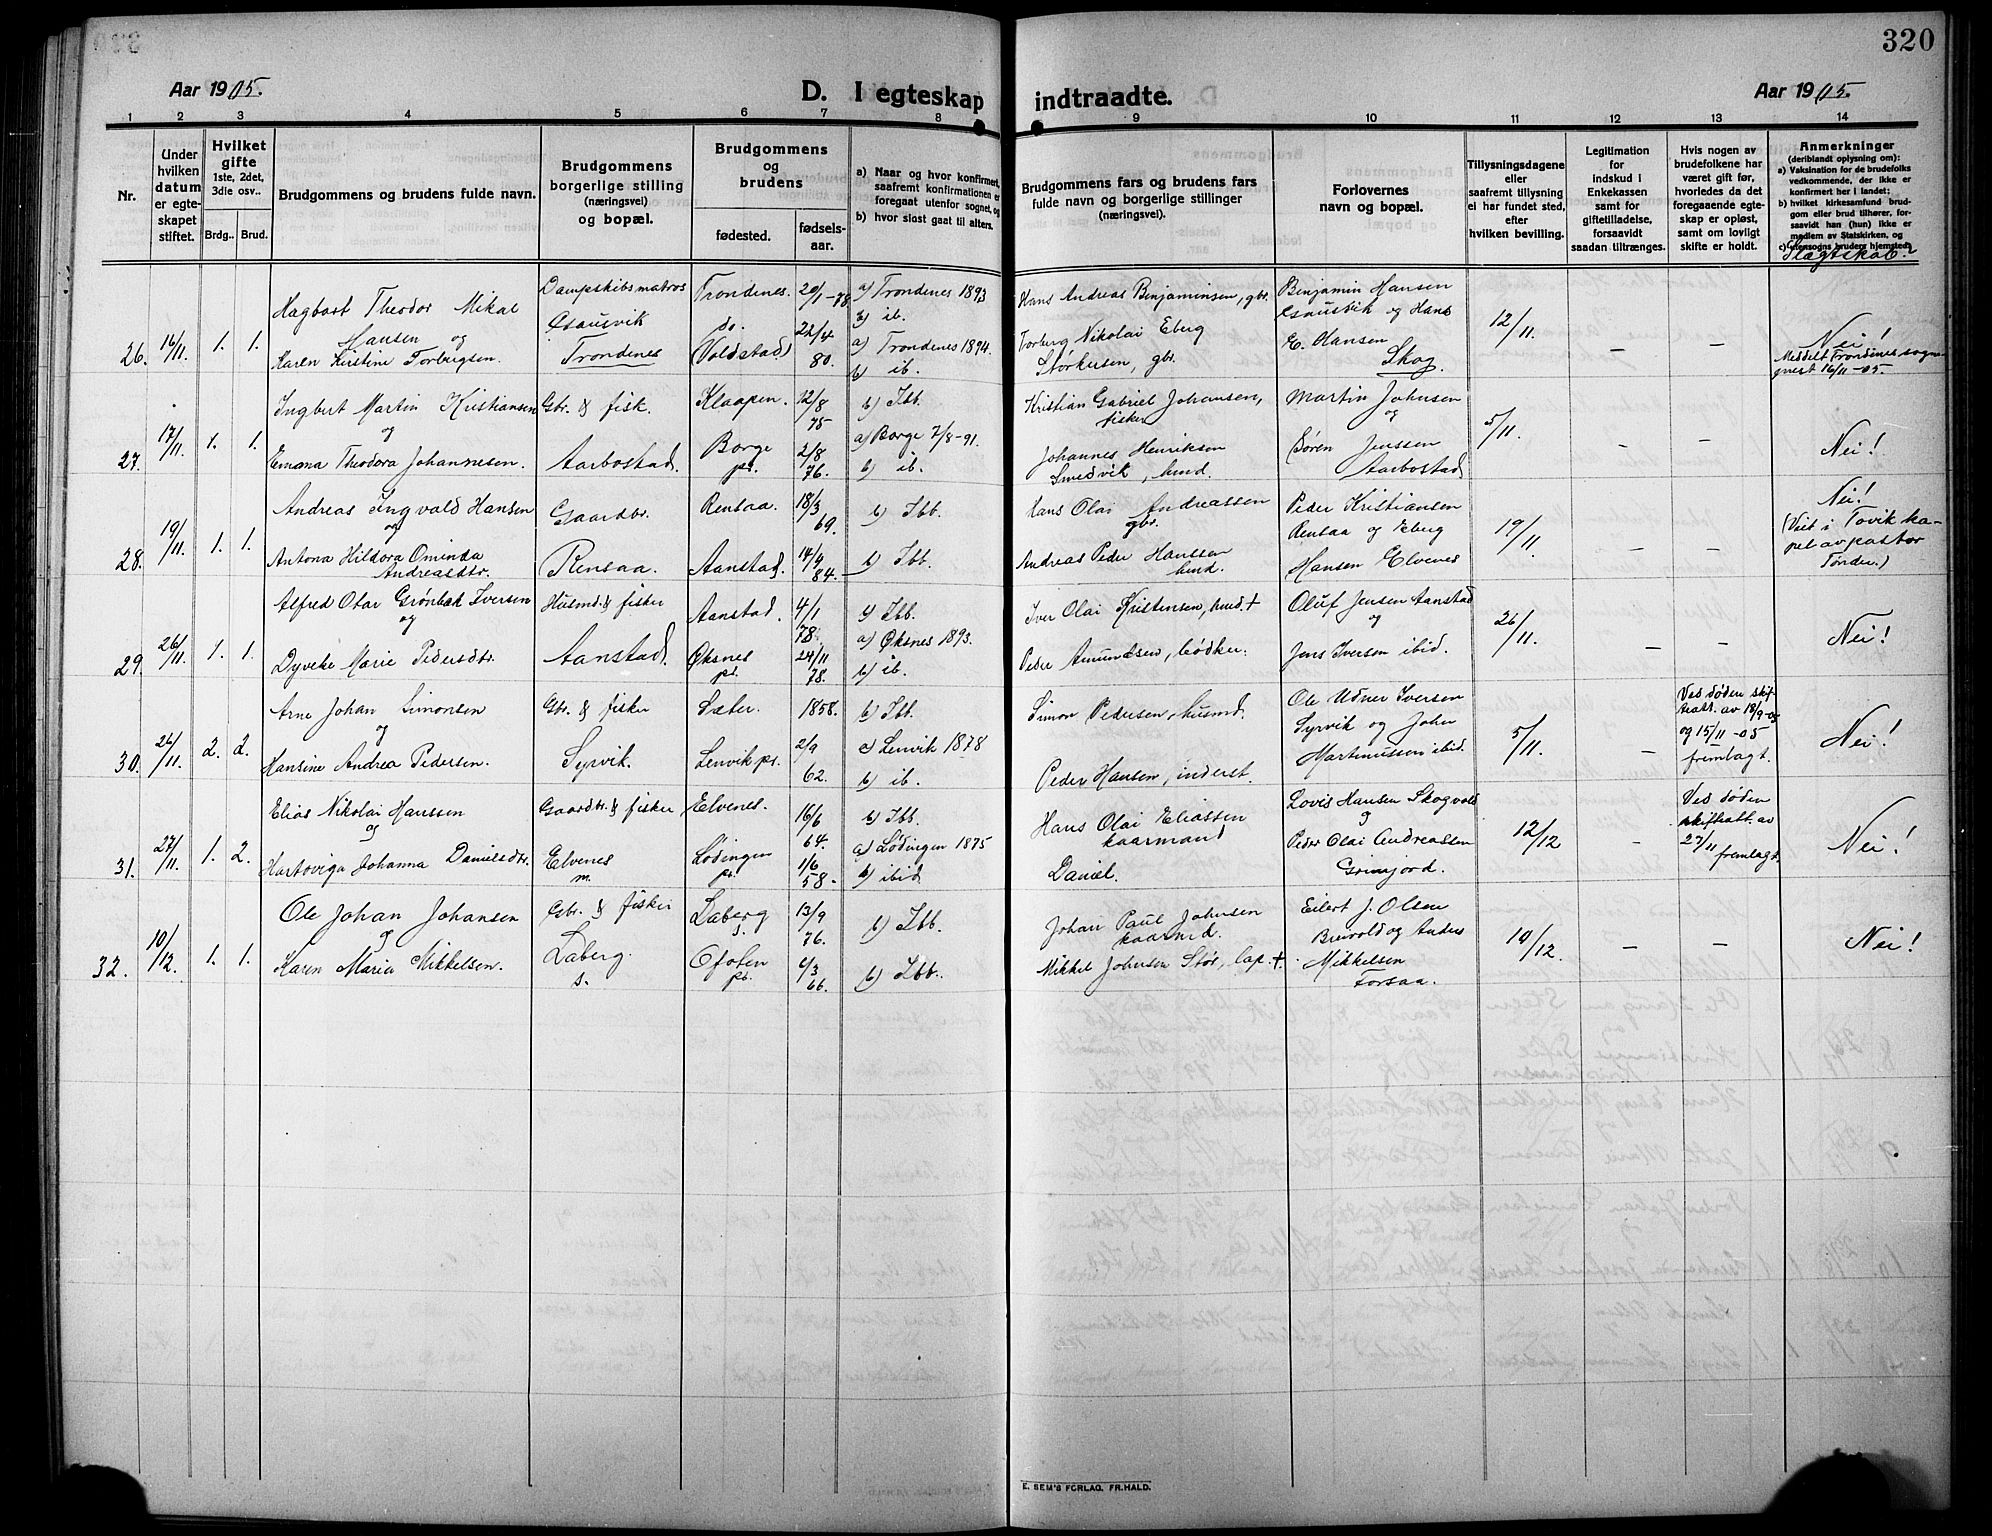 320
Aar 1905.
D. I egteskap indtraadte.
Aar 1905.
1 2 3 4 5 6 7 8 9 10 11 12 13 14
Nr.
Under hvilken datum er egteskapet stiftet.
Hvilket gifte 1ste, 2det, 3dle osv..
Brdg.. Brud.
Brudgommens og brudens fulde navn.
Brudgommens borgerlige stilling (næringsvei) og bopæl.
Brudgommens og brudens
fødested.
fødsels-aar.
a) Naar og hvor konfirmert, saafremt konfirmationen er foregaat utenfor sognet, og
b) hvor sidst gaat til alters.
Brudgommens fars og brudens fars fulde navn og borgerlige stillinger (næringsvei).
Forlovernes navn og bopæl.
Tillysningsdagene eller saafremt tillysning ei har fundet sted, efter hvilken bevilling.
Legitimation for indskud i Enkekassen samt for giftetilladelse, forsaavidt saadan tiltrænges.
Hvis nogen av brudefolkene har været gift før, hvorledes da det foregaaende egteskap er opløst, samt om lovligt skifte er holdt.
Anmerkninger (deriblandt oplysning om):
a) Vaksination for de brudefolks vedkommende, der ikke er konfirmert her i landet;
b) hvilket kirkesamfund brudgom eller brud tilhører, forsaavidt han (hun) ikke er medlem av Statskirken, og
c) utensogns bruders hjemsted.
Slægtskab?
26. 16/11. 1. 1.
Hagbart Theodor Mikal
Hansen og
Karen Kirstine Torbergsen.
Dampskibsmatros
Esausvik
Trondenes
Trondenes. 20/1-78.
do. (Voldstad) 22/4 80.
a) Trondenes 1893
b) ib.
a) Trondenes 1894.
b) ib.
Hans Andreas Benjaminsen, gbr.
Torberg Nikolai Eberg
Størkersen, gbr.
Benjamin Hansen
Esausvik og Hans
E. Hansen
Skog
12/11.
–
–
Nei!
Meddelt Trondenes sogneprest 16/11-05.
27. 17/11. 1. 1.
Ingbert Martin Kristiansen
og
Emma Theodora Johannesen.
Gbr. & fisk.
Aarbostad.
Klaapen. 12/8 75
Borge ps. 2/8 76.
b) Ibb.
a) Borge 7/8-91.
b) ib.
Kristian Gabriel Johansen,
fisker
Johannes Henriksen
Smedvik, husd.
Martin Johnsen
og
Søren Jenssen
Aarbostad
5/11.
–
–
Nei!
28. 19/11. 1. 1.
Andreas Ingvald Hansen
og
Antona Hildora Ominda
Andreasdtr.
Gaardbr.
Rensaa.
Rensaa. 18/3 69.
Aanstad. 14/9 84.
b) Ibb.
b) Ibb.
Hans Olai Andreassen
gbr.
Andreas Peder Hanssen
husd.
Peder Kristiansen
Rensaa og Eberg
Hansen Elvenes
19/11.
–
–
Nei!
(Viet i Tovik kapel av pastor Tønder.)
29. 26/11. 1. 1.
Alfred Otar Grønbæk Iversen
og
Dyveke Marie Pedersdtr.
Husmd. & fisker
Aanstad.
Aanstad. 4/1 78.
Øksnes ps. 24/11 78.
b) Ibb.
a) Øksnes 1893.
b) ib.
Iver Olai Kristensen, husd. +
Peder Amundsen, bødker.
Oluf Jensen Aanstad
og
Jens Iversen ibid.
26/11.
–
–
Nei!
30. 26/11. 2. 2.
Arne Johan Simonsen
og
Hansine Andrea Pedersen.
Gbr. & fisker
Syrvik.
Sæter. 1858.
Lenvik ps. 2/9 62.
b) Ibb.
a) Lenvik 1878
b) ib.
Simon Pedersen, husmd.
Peder Hansen, inderst.
Ole Udner Iversen
Syrvik og John
Martinussen ibid.
5/11.
–
Ved døden skifteatt. av 18/9-05
og 15/11-05
fremlagt.
Nei!
31. 27/11. 1. 2.
Elias Nikolai Hanssen
og
Hartoviga Johanna Danielsdtr.
Gaardbr. & fisker
Elvenes
m.
Elvenes. 16/6 64.
Lødingen ps. 1/6 58-
b) Ibb.
a) Lødingen 1875
b) ibid
Hans Olai Eliassen
kaarmand
Daniel.
Lovis Hansen Skogvold
og
Peder Olai Andreassen
Grimjord.
12/12
–
Ved døden
skifteatt. av
27/11 fremlagt.
Nei!
32. 10/12. 1. 1.
Ole Johan Johansen
og
Karen Maria Mikkelsen.
Gbr. & fisker
Laberg.
s.
Laberg s. 13/9 76.
Ofoten ps. 6/3 66.
b) Ibb.
b) Ibb.
Johan Paul Johnsen
kaarmd.
Mikkel Johnsen Stor, lap. +.
Eilert J. Olsen
Breivold og Anders
Mikkelsen
Forsaa.
10/12.
–
–
Nei!
E. SEM'S FORLAG. FR.HALD.